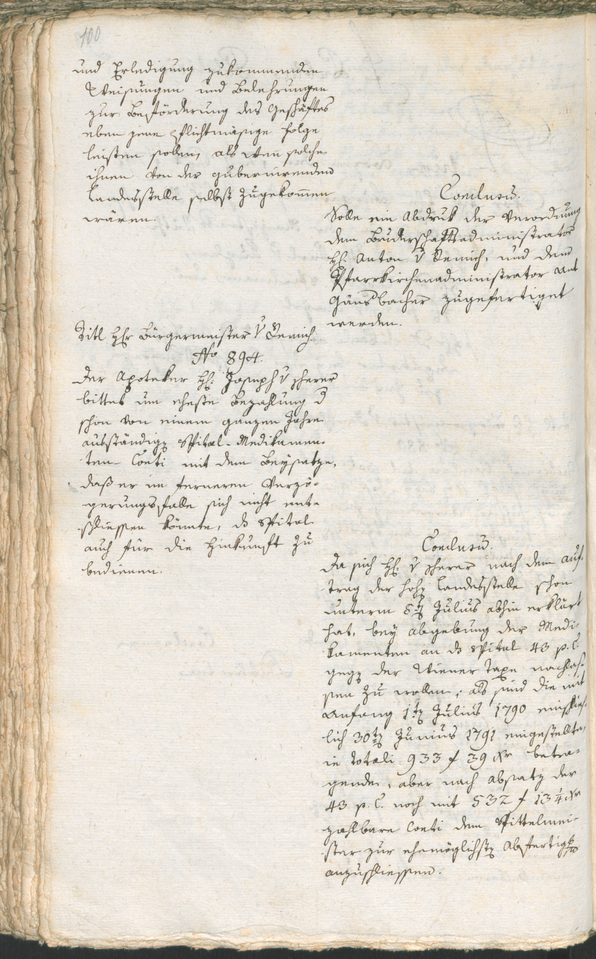 100
und Erledigung zukommenden
Weisungen und Belehrungen
zur Beförderung des Geschäftes
eben jene pflichtmässige Folge
leisten sollen, als wen solche
ihnen von der gubernirenden
Landesstelle selbst zugekommen
wären.
Conclusum.
Solle ein Abdruk der Verordnung
dem Bruderschaftsadministrator
H: Anton v Remich, und dem
Pfarrkirchenadministrator
Gänsbacher zugefertiget
werden.
Titl Hr Bürgermeister v Remich
No 894.
Der Apoteker H: Joseph v Scherer
bittet um eheste Bezahlung d
schon von einem ganzen Jahre
ausständigen Spital-Medikamen-
ten Conti mit dem Beysatze,
daß er im ferneren Verzö-
gerungsfalle sich nicht ent-
schliessen könnte, ds Spital
auch für die Hinkunft zu
bedienen.
Conclusum.
Da sich H: v Scherer nach dem Auf-
trag der hohen Landesstelle schon
unterm 5ten Julius abhin erklärt
hat, bey Abgebung der Medi-
kamenten an ds Spital 43 p. C.
gegen der Wiener Taxe nachlas-
sen zu wollen; als sind die mit
Anfang 1ten Julius 1790 einschlies-
lich 30ten Junius 1791 eingestellte,
in totali 933 f 39 xr betra-
gende, aber nach Absatz der
43 p. C. noch mit 532 f 13¼ xr
zahlbare Conti dem Spittelmei-
ster zur ehemöglichsten Abfertigung
anzuschliessen.